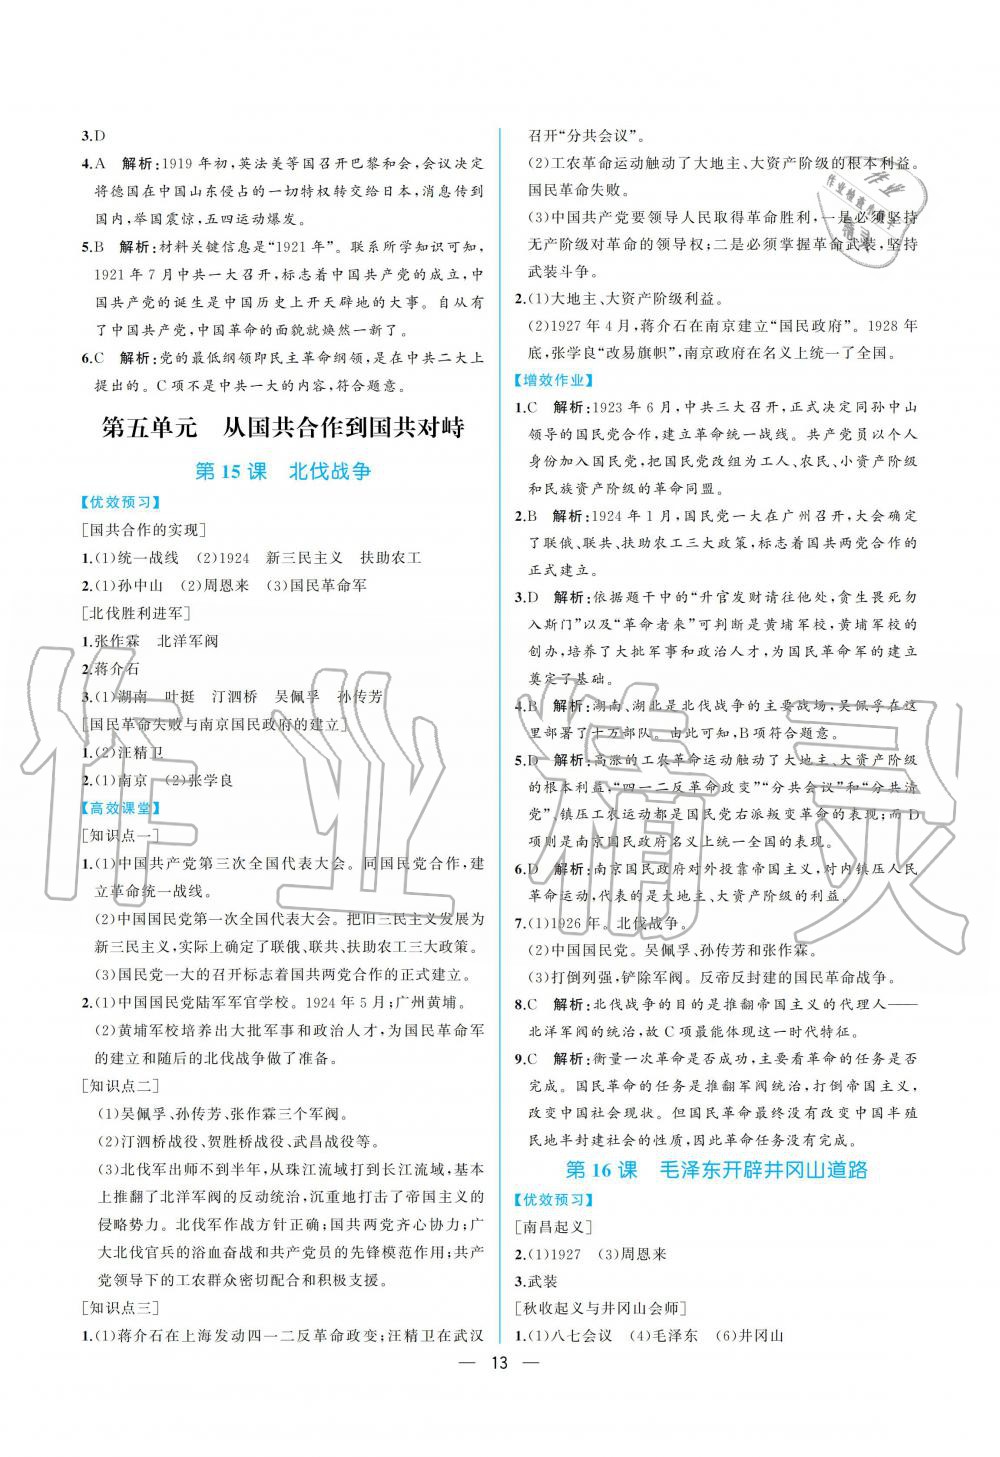 3.D
4.A　解析:1919 年初,英法美等国召开巴黎和会,会议决定
将德国在中国山东侵占的一切特权转交给日本,消息传到
国内,举国震惊,五四运动爆发。
5.B　解析:材料关键信息是“1921 年”。联系所学知识可知,
1921 年 7 月中共一大召开,标志着中国共产党的成立,中
国共产党的诞生是中国历史上开天辟地的大事。自从有
了中国共产党,中国革命的面貌就焕然一新了。
6.C　解析:党的最低纲领即民主革命纲领,是在中共二大上
提出的。C 项不是中共一大的内容,符合题意。
第五单元　从国共合作到国共对峙
第 15 课　北伐战争
【优效预习】
[国共合作的实现]
1.(1)统一战线　(2)1924　新三民主义　扶助农工
2.(1)孙中山　(2)周恩来　(3)国民革命军
[北伐胜利进军]
1.张作霖　北洋军阀
2.蒋介石
3.(1)湖南　叶挺　汀泗桥　吴佩孚　孙传芳
[国民革命失败与南京国民政府的建立]
1.(2)汪精卫
2.(1)南京　(2)张学良
【高效课堂】
[知识点一]
1.(1)中国共产党第三次全国代表大会。同国民党合作,建
立革命统一战线。
(2)中国国民党第一次全国代表大会。把旧三民主义发展为
新三民主义,实际上确定了联俄、联共、扶助农工三大政策。
(3)国民党一大的召开标志着国共两党合作的正式建立。
2.(1)中国国民党陆军军官学校。1924 年 5 月;广州黄埔。
(2)黄埔军校培养出大批军事和政治人才,为国民革命军
的建立和随后的北伐战争做了准备。
[知识点二]
(1)吴佩孚、孙传芳、张作霖三个军阀。
(2)汀泗桥战役、贺胜桥战役、武昌战役等。
(3)北伐军出师不到半年,从珠江流域打到长江流域,基本
上推翻了北洋军阀的反动统治,沉重地打击了帝国主义的
侵略势力。北伐军作战方针正确;国共两党齐心协力;广
大北伐官兵的浴血奋战和共产党员的先锋模范作用;共产
党领导下的工农群众密切配合和积极支援。
[知识点三]
1.(1)蒋介石在上海发动四一二反革命政变;汪精卫在武汉
召开“分共会议”。
(2)工农革命运动触动了大地主、大资产阶级的根本利益。
国民革命失败。
(3)中国共产党要领导人民取得革命胜利,一是必须坚持
无产阶级对革命的领导权;二是必须掌握革命武装,坚持
武装斗争。
2.(1)大地主、大资产阶级利益。
(2)1927 年 4 月,蒋介石在南京建立“国民政府”。1928 年
底,张学良“改易旗帜”,南京政府在名义上统一了全国。
【增效作业】
1.C　解析:1923 年 6 月,中共三大召开,正式决定同孙中山
领导的国民党合作,建立革命统一战线。共产党员以个人
身份加入国民党,把国民党改组为工人、农民、小资产阶级
和民族资产阶级的革命同盟。
2.B　解析:1924 年 1 月,国民党一大在广州召开,大会确定
了联俄、联共、扶助农工三大政策,标志着国共两党合作的
正式建立。
3.D　解析:依据题干中的“升官发财请往他处,贪生畏死勿
入斯门”以及“革命者来”可判断是黄埔军校,黄埔军校的
创办,培养了大批军事和政治人才,为国民革命军的建立
奠定了基础。
4.B　解析:湖南、湖北是北伐战争的主要战场,吴佩孚在这
里部署了十万部队。由此可知,B项符合题意。
5.D　解析:高涨的工农革命运动触动了大地主、大资产阶级
的根本利益,“四一二反革命政变”“分共会议”和“分共清
党”、镇压工农运动都是国民党右派叛变革命的表现;而 D
项则是南京国民政府名义上统一全国的表现。
6.D　解析:南京国民政府对外投靠帝国主义,对内镇压人民
革命运动,代表的是大地主、大资产阶级的利益。
7.(1)1926 年。北伐战争。
(2)中国国民党。吴佩孚、孙传芳和张作霖。
(3)打倒列强,铲除军阀。反帝反封建的国民革命战争。
8.C　解析:北伐战争的目的是推翻帝国主义的代理人——
北洋军阀的统治,故 C 项最能体现这一时代特征。
9.C　解析:衡量一次革命是否成功,主要看革命的任务是否
完成。国民革命的任务是推翻军阀统治,打倒帝国主义,
改变中国社会现状。但国民革命最终没有改变中国半殖
民地半封建社会的性质,因此革命任务没有完成。
第 16 课　毛泽东开辟井冈山道路
【优效预习】
[南昌起义]
2.(1)1927　(3)周恩来
3.武装
[秋收起义与井冈山会师]
1.(1)八七会议　(4)毛泽东　(6)井冈山
— 13 —
作业精灵